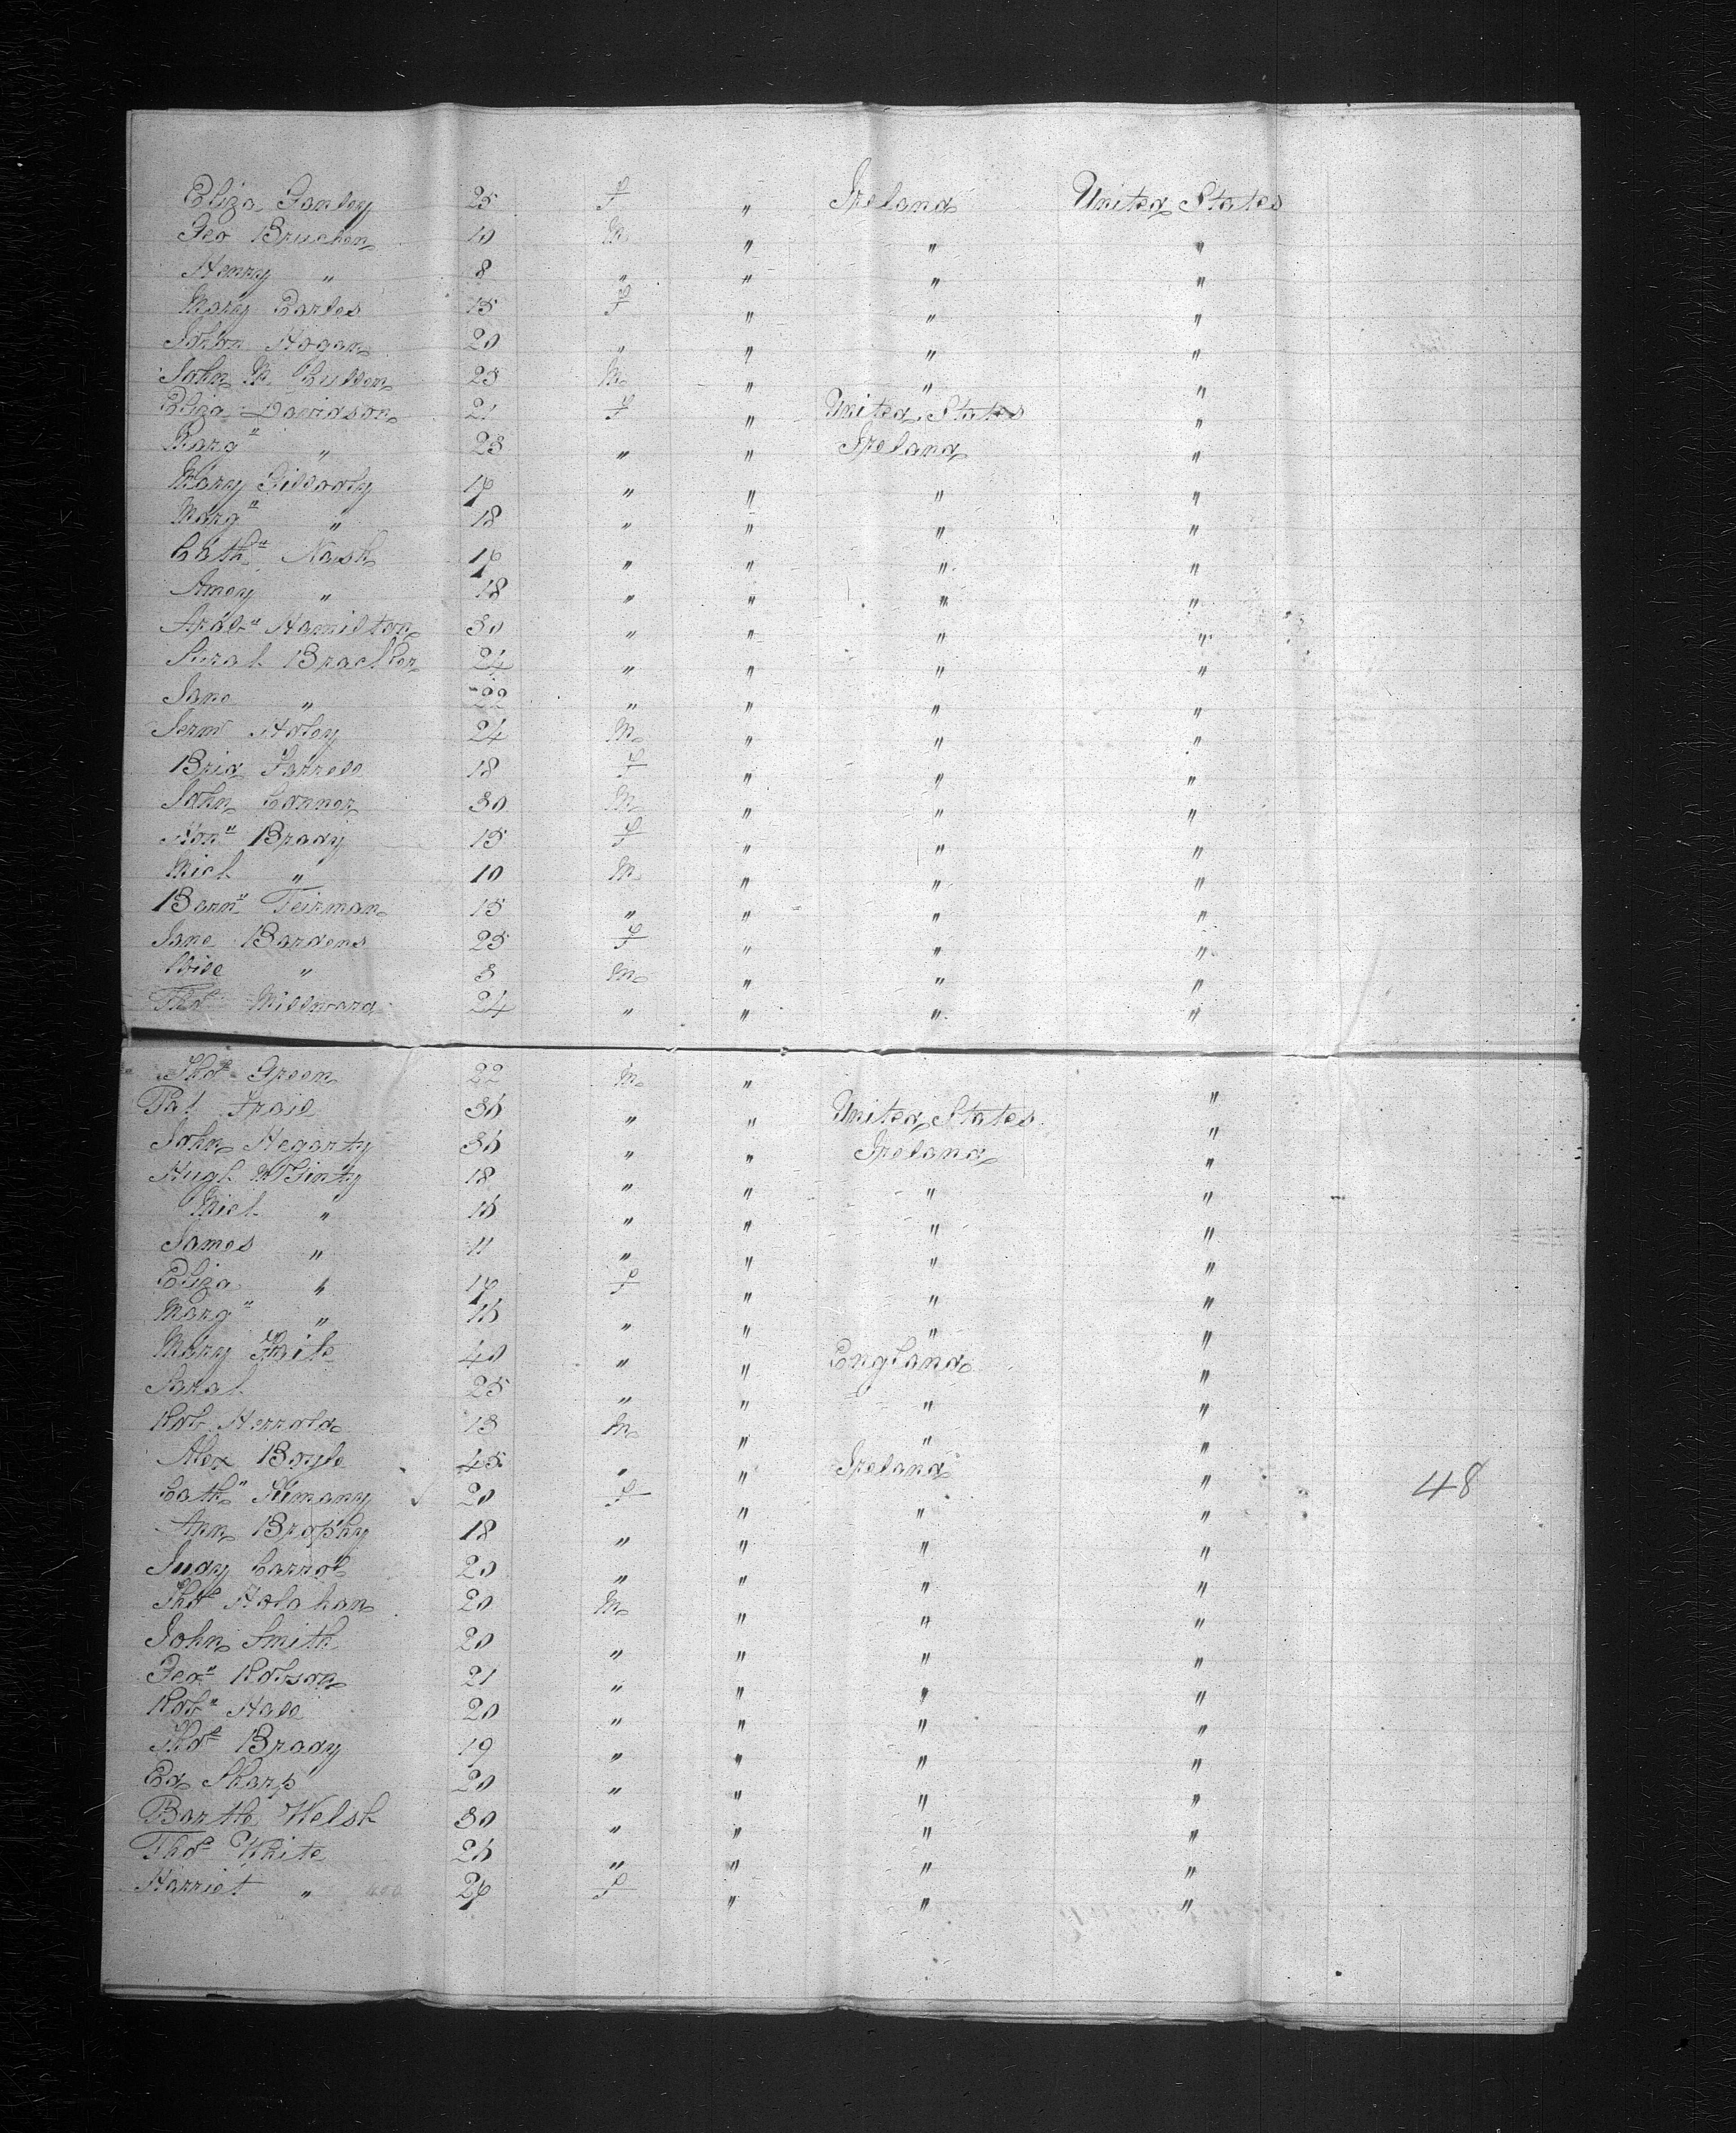 Eliza Ganley 25 F " Ireland United States
Geo Bruchen 10 M " " "
Henry " 8 " " " "
Mary Carles 15 F " " "
Hogan 20 " " " "
John Mc Cullen 25 M " " "
Eliza Davidson 21 F " United States "
Marg" " 23 " " Ireland "
Mary Gillooly 17 " " " "
Marg" " 18 " " " "
Cath" Nash 17 " " " "
Amey " 18 " " " "
Hamilton 30 " " " "
Sarah 24 " " " "
Jane " 22 " " " "
Jerm Holey 24 M " " "
Brid Farrell 18 F " " "
John Connor 30 M " " "
Hon" Brady 15 F " " "
Mich " 10 M " " "
Barn" Teirman 15 " " " "
Jane Bardens 25 F " " "
Will " 8 M " " "
Thos Millward 24 " " " "
Thos Green 22 M " "
Pat Frail 36 " " United States "
John Hegarty 36 " " Ireland "
Hugh McGinty 18 " " " "
Mich " 16 " " " "
James " 11 " " " "
Eliza " 17 F " " "
Marg" " 16 " " " "
Mary Haite 40 " " England "
Sarah 25 " " " "
Rob Herrold 13 M " " "
Alex Boyle 45 " " Ireland "
Cath" 20 F " " " 48
Ann Brophy 18 " " " "
Judy Carrol 20 " " " "
Thos Holahan 20 M " " "
John Smith 20 " " " "
Geo" Robson 21 " " " "
Rob" Hall 20 " " " "
Thos Brady 19 " " " "
Ed Sharp 20 " " " "
Barth Welsh 30 " " " "
Thos White 26 " " " "
Harriet " 27 F " " "